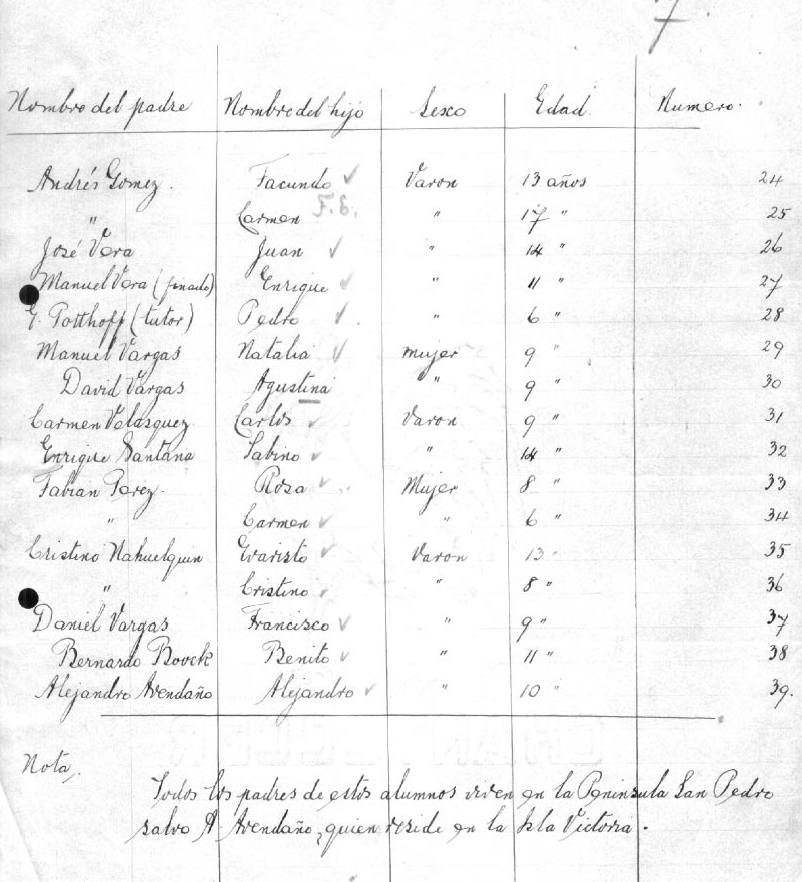 7
Nombre del padre Nombre del hijo Sexo Edad. Numero.
Andrés Gomez. Facundo ✓ Varon 13 años 24
" Carmen F.E. " 17 " 25
José Vera Juan ✓ " 14 " 26
Manuel Vera (finado) Enrique ✓ " 11 " 27
G. Potthoff (tutor) Pedro ✓ " 6 " 28
Manuel Vargas Natalia ✓ mujer 9 " 29
David Vargas Agustina " 9 " 30
Carmen Velasquez Carlos ✓ Varon 9 " 31
Enrique Santana Sabino ✓ " 14 " 32
Fabian Perez. Rosa ✓ Mujer 8 " 33
" Carmen ✓ " 6 " 34
Cristino Nahuelquin Evaristo ✓ Varon 13 " 35
" Cristino ✓ " 8 " 36
Daniel Vargas Francisco ✓ " 9 " 37
Bernardo Boock Benito ✓ " 11 " 38
Alejandro Avendaño Alejandro ✓ " 10 " 39.
Nota.
Todos los padres de estos alumnos viven en la Peninsula San Pedro
salvo A. Avendaño, quien reside en la Isla Victoria.